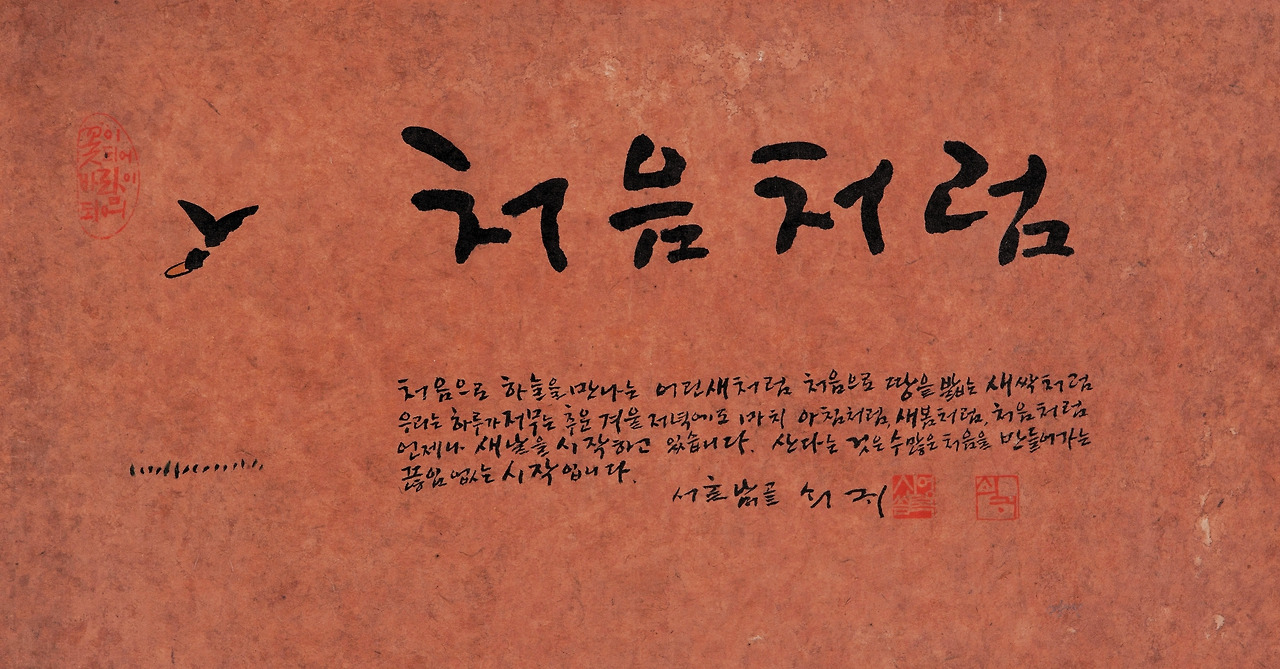 처음처럼
처음으로 하늘을 만나는 어린새처럼 처음으로 땅을 밟는 새싹처럼
우리는 하루가 저무는 추운 겨울 저녁에도 마치 아침처럼, 새봄처럼, 처음처럼
언제나 새날을 시작하고 있습니다. 산다는 것은 수많은 처음을 만들어가는
끊임없는 시작입니다.